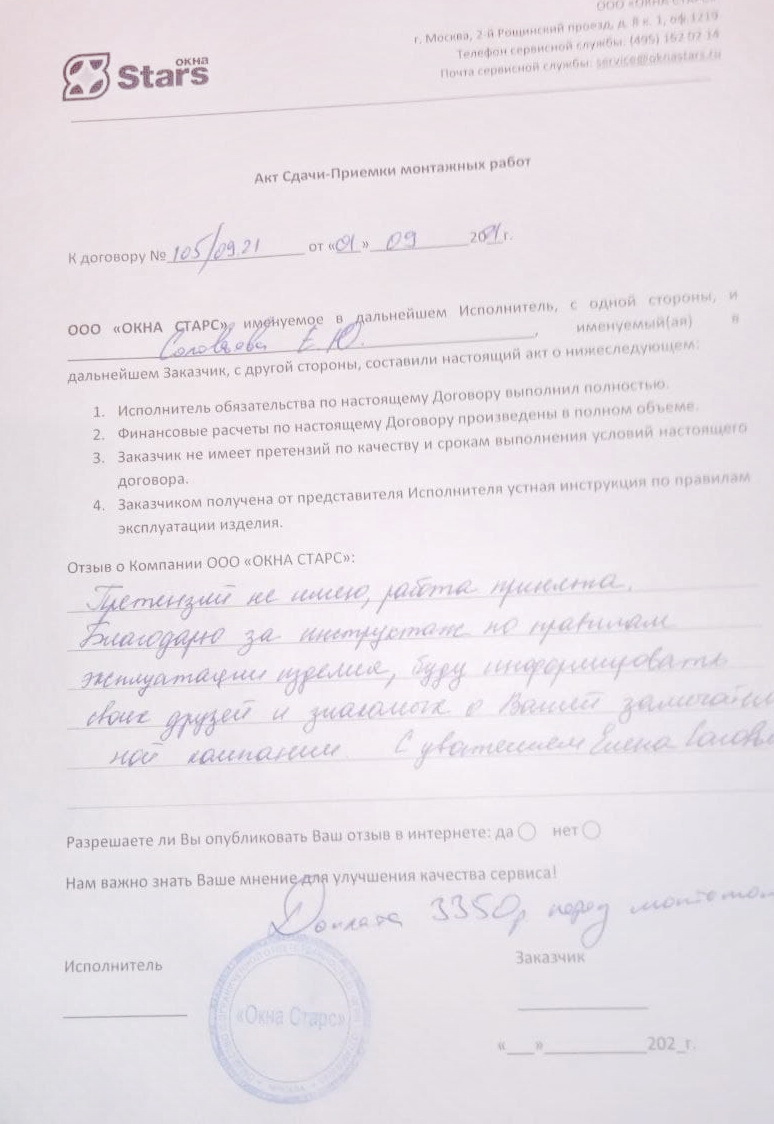 ООО «ОКНА СТАРС»
г. Москва, 2-й Рощинский проезд, д. 8 к. 1, оф.1219
Телефон сервисной службы: (495) 162 02 14
Почта сервисной службы: service@oknastars.ru
окна
Stars
Акт Сдачи-Приемки монтажных работ
К договору № 105/09.21 от «01» 09 2021г.
ООО «ОКНА СТАРС», именуемое в дальнейшем Исполнитель, с одной стороны, и
Соловьова Е. Ю., именуемый(ая) в
дальнейшем Заказчик, с другой стороны, составили настоящий акт о нижеследующем:
1. Исполнитель обязательства по настоящему Договору выполнил полностью.
2. Финансовые расчеты по настоящему Договору произведены в полном объеме.
3. Заказчик не имеет претензий по качеству и срокам выполнения условий настоящего
договора.
4. Заказчиком получена от представителя Исполнителя устная инструкция по правилам
эксплуатации изделия.
Отзыв о Компании ООО «ОКНА СТАРС»:
Претензий не имею, работа принята.
Благодарю за инструктаж по правилам
эксплуатации изделия, буду информировать
своих друзей и знакомых о Вашей замечатель
ной компании. С уважением Елена Соловь
Разрешаете ли Вы опубликовать Ваш отзыв в интернете: да нет
Нам важно знать Ваше мнение для улучшения качества сервиса!
Доплата 3350р перед монтажом
Исполнитель
Заказчик
«Окна Старс»
«___»____________202_г.